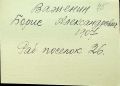 Важенин
Борис Александрович
1907
Раб поселок 26.